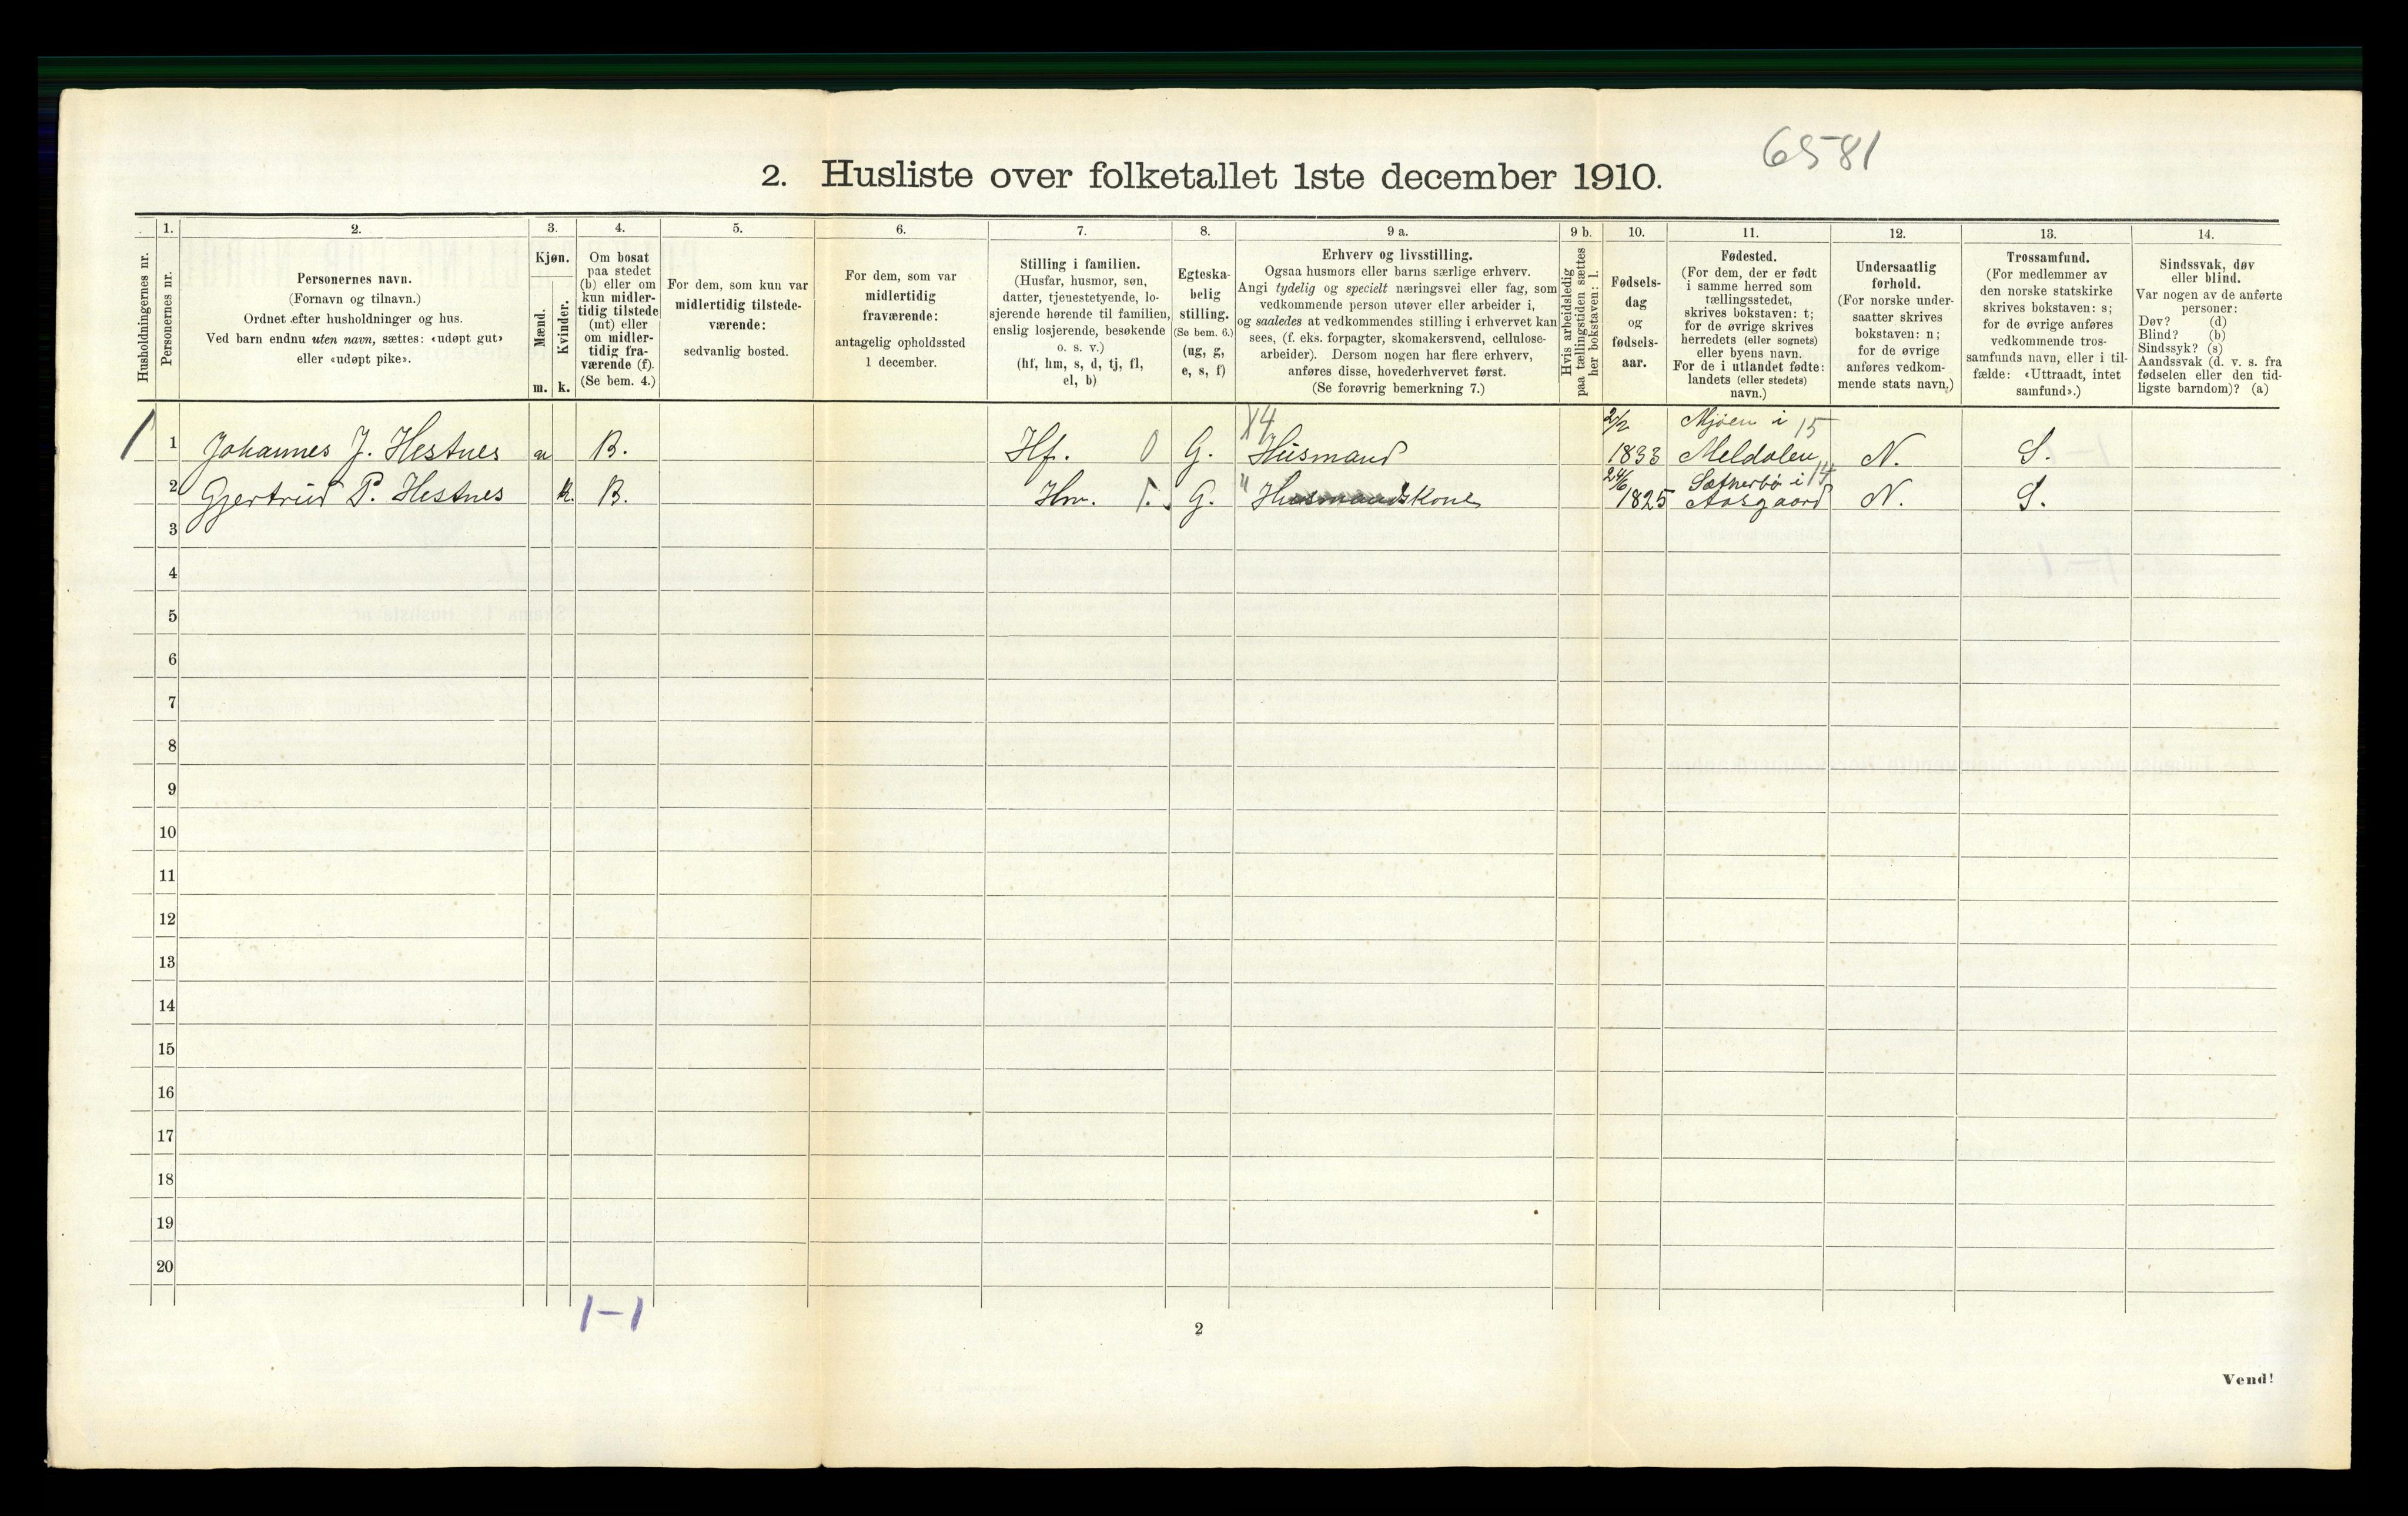 6581
2. Husliste over folketallet 1ste december 1910.
Husholdningernes nr.
1.
Personernes nr.
2.
Personernes navn.
(Fornavn og tilnavn.)
Ordnet efter husholdninger og hus.
Ved barn endnu uten navn, sættes: «udøpt gut»
eller «udøpt pike».
3.
Kjøn.
Mænd.
Kvinder.
m. k.
4.
Om bosat
paa stedet
(b) eller om
kun midler-
tidig tilstede
(mt) eller
om midler-
tidig fra-
værende (f).
(Se bem. 4.)
5.
For dem, som kun var
midlertidig tilstede-
værende:
sedvanlig bosted.
6.
For dem, som var
midlertidig
fraværende:
antagelig opholdssted
1 december.
7.
Stilling i familien.
(Husfar, husmor, søn,
datter, tjenestetyende, lo-
sjerende hørende til familien,
enslig losjerende, besøkende
o. s. v.)
(hf, hm, s, d, tj, fl,
el, b)
8.
Egteska-
belig
stilling.
(Se bem. 6.)
(ug, g,
e, s, f)
9 a.
Erhverv og livsstilling.
Ogsaa husmors eller barns særlige erhverv.
Angi tydelig og specielt næringsvei eller fag, som
vedkommende person utøver eller arbeider i,
og saaledes at vedkommendes stilling i erhvervet kan
sees, (f. eks. forpagter, skomakersvend, cellulose-
arbeider). Dersom nogen har flere erhverv,
anføres disse, hovederhvervet først.
(Se forøvrig bemerkning 7.)
9 b.
Hvis arbeidsledig
paa tællingstiden sættes
her bokstaven: l.
10.
Fødsels-
dag
og
fødsels-
aar.
11.
Fødested.
(For dem, der er født
i samme herred som
tællingsstedet,
skrives bokstaven: t;
for de øvrige skrives
herredets (eller sognets)
eller byens navn.
For de i utlandet fødte:
landets (eller stedets)
navn.)
12.
Undersaatlig
forhold.
(For norske under-
saatter skrives
bokstaven: n;
for de øvrige
anføres vedkom-
mende stats navn.)
13.
Trossamfund.
(For medlemmer av
den norske statskirke
skrives bokstaven: s;
for de øvrige anføres
vedkommende tros-
samfunds navn, eller i til-
fælde: «Uttraadt, intet
samfund».)
14.
Sindssvak, døv
eller blind.
Var nogen av de anførte
personer:
Døv? (d)
Blind? (b)
Sindssyk? (s)
Aandssvak (d. v. s. fra
fødselen eller den tid-
ligste barndom)? (a)
X4 2/2 Mjöen i 15
1 1 Johannes J. Hestnes m B. Hf. 0 G. Husmand 1833 Meldalen N. S.
24/6 Sætherbö i 14
2 Gjertrud P. Hestnes k. B. Hm. G. " Husmandskone 1825 Aasgaard N. S.
3
4
5
6
7
8
9
10
11
12
13
14
15
16
17
18
19
20
1-1
2
Vend!